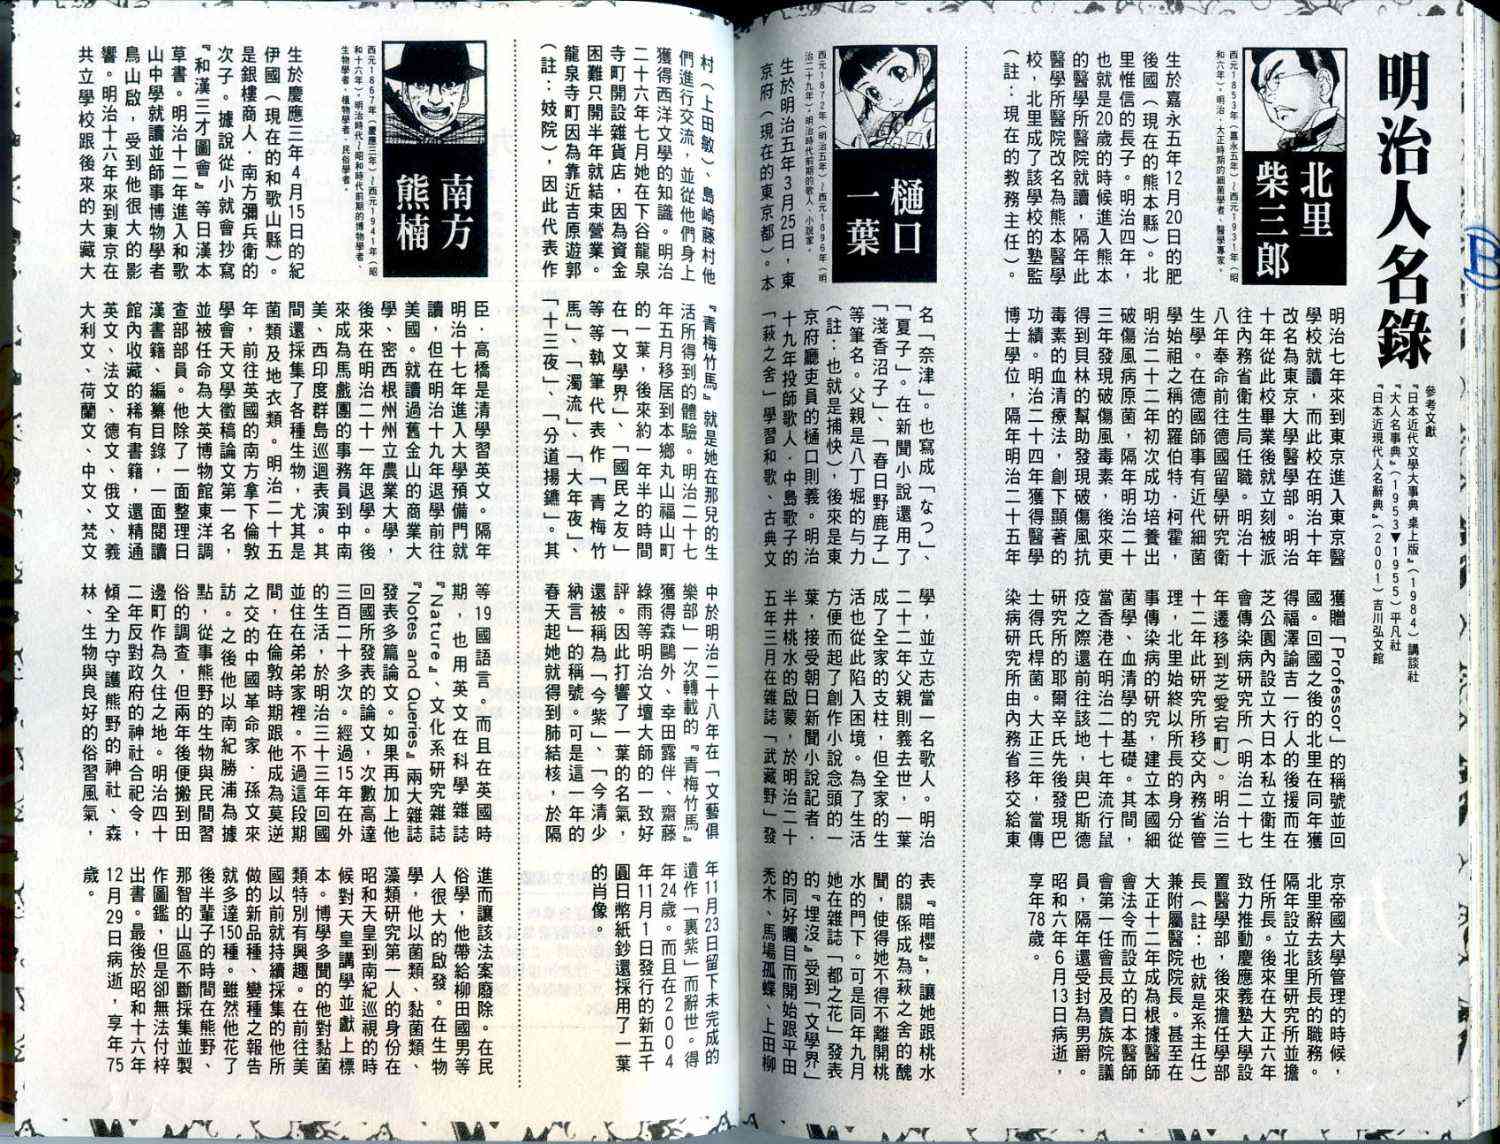 明治人名錄
參考文獻
『日本近代文學大事典 桌上版』(1984)講談社
『大人名事典』(1953▼1955)平凡社
『日本近現代人名辭典』(2001)吉川弘文館
北里
柴三郎
西元1853年(嘉永五年)~西元1931年(昭
和六年)。明治・大正時期的細菌學者、醫學專家。
生於嘉永五年12月20日的肥
後國(現在的熊本縣)。北
里惟信的長子。明治四年,
也就是20歲的時候進入熊本
的醫學所醫院就讀,隔年此
醫學所醫院改名為熊本醫學
校,北里成了該學校的塾監
(註:現在的教務主任)。
明治七年來到東京進入東京醫
學校就讀,而此校在明治十年
改名為東京大學醫學部。明治
十年從此校畢業後就立刻被派
往內務省衛生局任職。明治十
八年奉命前往德國留學研究衛
生學。在德國師事有近代細菌
學始祖之稱的羅伯特・柯霍,
明治二十二年初次成功培養出
破傷風病原菌,隔年明治二十
三年發現破傷風毒素,後來更
得到貝林的幫助發現破傷風抗
毒素的血清療法,創下顯著的
功績。明治二十四年獲得醫學
博士學位,隔年明治二十五年
獲贈「Professor」的稱號並回
國。回國之後的北里在同年獲
得福澤諭吉一行人的後援而在
芝公園內設立大日本私立衛生
會傳染病研究所(明治二十七
年遷移到芝愛宕町)。明治三
十二年此研究所移交內務省管
理,北里始終以所長的身分從
事傳染病的研究,建立本國細
菌學、血清學的基礎。其間,
當香港在明治二十七年流行鼠
疫之際還前往該地,與巴斯德
研究所的耶爾辛氏先後發現巴
士得氏桿菌。大正三年,當傳
染病研究所由內務省移交給東
京帝國大學管理的時候,
北里辭去該所長的職務。
隔年設立北里研究所並擔
任所長。後來在大正六年
致力推動慶應義塾大學設
置醫學部,後來擔任學部
長(註:也就是系主任)
兼附屬醫院院長。甚至在
大正十二年成為根據醫師
會法令而設立的日本醫師
會第一任會長及貴族院議
員,隔年還受封為男爵。
昭和六年6月13日病逝,
享年78歲。
樋口
一葉
西元1872年(明治五年)~西元1896年(明
治二十九年)。明治時代前期的歌人、小說家。
生於明治五年3月25日,東
京府(現在的東京都)。本
名「奈津」。也寫成「なつ」、
「夏子」。在新聞小說還用了
「淺香沼子」、「春日野鹿子」
等筆名。父親是八丁堀的与力
(註:也就是捕快),後來是東
京府廳吏員的樋口則義。明治
十九年投師歌人・中島歌子的
「萩之舍」學習和歌、古典文
學,並立志當一名歌人。明治
二十二年父親則義去世,一葉
成了全家的支柱,但全家的生
活也從此陷入困境。為了生活
方便而起了創作小說念頭的一
葉,接受朝日新聞小說記者・
半井桃水的啟蒙,於明治二十
五年三月在雜誌「武藏野」發
表『暗櫻』,讓她跟桃水
的關係成為萩之舍的醜
聞,使得她不得不離開桃
水的門下。可是同年九月
她在雜誌「都之花」發表
的『埋沒』受到「文學界」
的同好矚目而開始跟平田
禿木、馬場孤蝶、上田柳
村(上田敏)、島崎藤村他
們進行交流,並從他們身上
獲得西洋文學的知識。明治
二十六年七月她在下谷龍泉
寺町開設雜貨店,因為資金
困難只開半年就結束營業。
龍泉寺町因為靠近吉原遊郭
(註:妓院),因此代表作
『青梅竹馬』就是她在那兒的生
活所得到的體驗。明治二十七
年五月移居到本鄉丸山福山町
的一葉,後來約一年半的時間
在「文學界」、「國民之友」
等等執筆代表作「青梅竹
馬」、「濁流」、「大年夜」、
「十三夜」、「分道揚鑣」。其
中於明治二十八年在「文藝俱
樂部」一次轉載的『青梅竹馬』
獲得森鷗外、幸田露伴、齋藤
綠雨等明治文壇大師的一致好
評。因此打響了一葉的名氣,
還被稱為「今紫」、「今清少
納言」的稱號。可是這一年的
春天起她就得到肺結核,於隔
年11月23日留下未完成的
遺作「裏紫」而辭世。得
年24歲。而且在2004
年11月1日發行的新五千
圓日幣紙鈔還採用了一葉
的肖像。
南方
熊楠
西元1867年(慶應三年)~西元1941年(昭
和十六年)。明治時代~昭和時代前期的博物學者、
生物學者、植物學者、民俗學者。
生於慶應三年4月15日的紀
伊國(現在的和歌山縣)。
是銀樓商人・南方彌兵衛的
次子。據說從小就會抄寫
『和漢三才圖會』等日漢本
草書。明治十二年進入和歌
山中學就讀並師事博物學者
鳥山啟,受到他很大的影
響。明治十六年來到東京在
共立學校跟後來的大藏大
臣・高橋是清學習英文。隔年
明治十七年進入大學預備門就
讀,但在明治十九年退學前往
美國。就讀過舊金山的商業大
學、密西根州州立農業大學,
後來在明治二十一年退學。後
來成為馬戲團的事務員到中南
美、西印度群島巡迴表演。其
間還採集了各種生物,尤其是
菌類及地衣類。明治二十五
年,前往英國的南方拿下倫敦
學會天文學徵稿論文第一名,
並被任命為大英博物館東洋調
查部部員。他除了一面整理日
漢書籍、編纂目錄,一面閱讀
館內收藏的稀有書籍,還精通
英文、法文、德文、俄文、義
大利文、荷蘭文、中文、梵文
等19國語言。而且在英國時
期,也用英文在科學雜誌
『Nature』、文化系研究雜誌
『Notes and Queries』兩大雜誌
發表多篇論文。如果再加上他
回國所發表的論文,次數高達
三百二十多次。經過15年在外
的生活,於明治三十三年回國
並住在弟弟家裡。不過這段期
間,在倫敦時期跟他成為莫逆
之交的中國革命家・孫文來
訪。之後他以南紀勝浦為據
點,從事熊野的生物與民間習
俗的調查,但兩年後便搬到田
邊町作為久住之地。明治四十
二年反對政府的神社合祀令,
傾全力守護熊野的神社、森
林、生物與良好的俗習風氣,
進而讓該法案廢除。在民
俗學,他帶給柳田國男等
人很大的啟發。在生物
學,他以菌類、黏菌類、
藻類研究第一人的身份在
昭和天皇到南紀巡視的時
候對天皇講學並獻上標
本。博學多聞的他對黏菌
類特別有興趣。在前往美
國以前就持續採集的他所
做的新品種、變種之報告
就多達150種。雖然他花了
後半輩子的時間在熊野、
那智的山區不斷採集並製
作圖鑑,但是卻無法付梓
出書。最後於昭和十六年
12月29日病逝,享年75
歲。